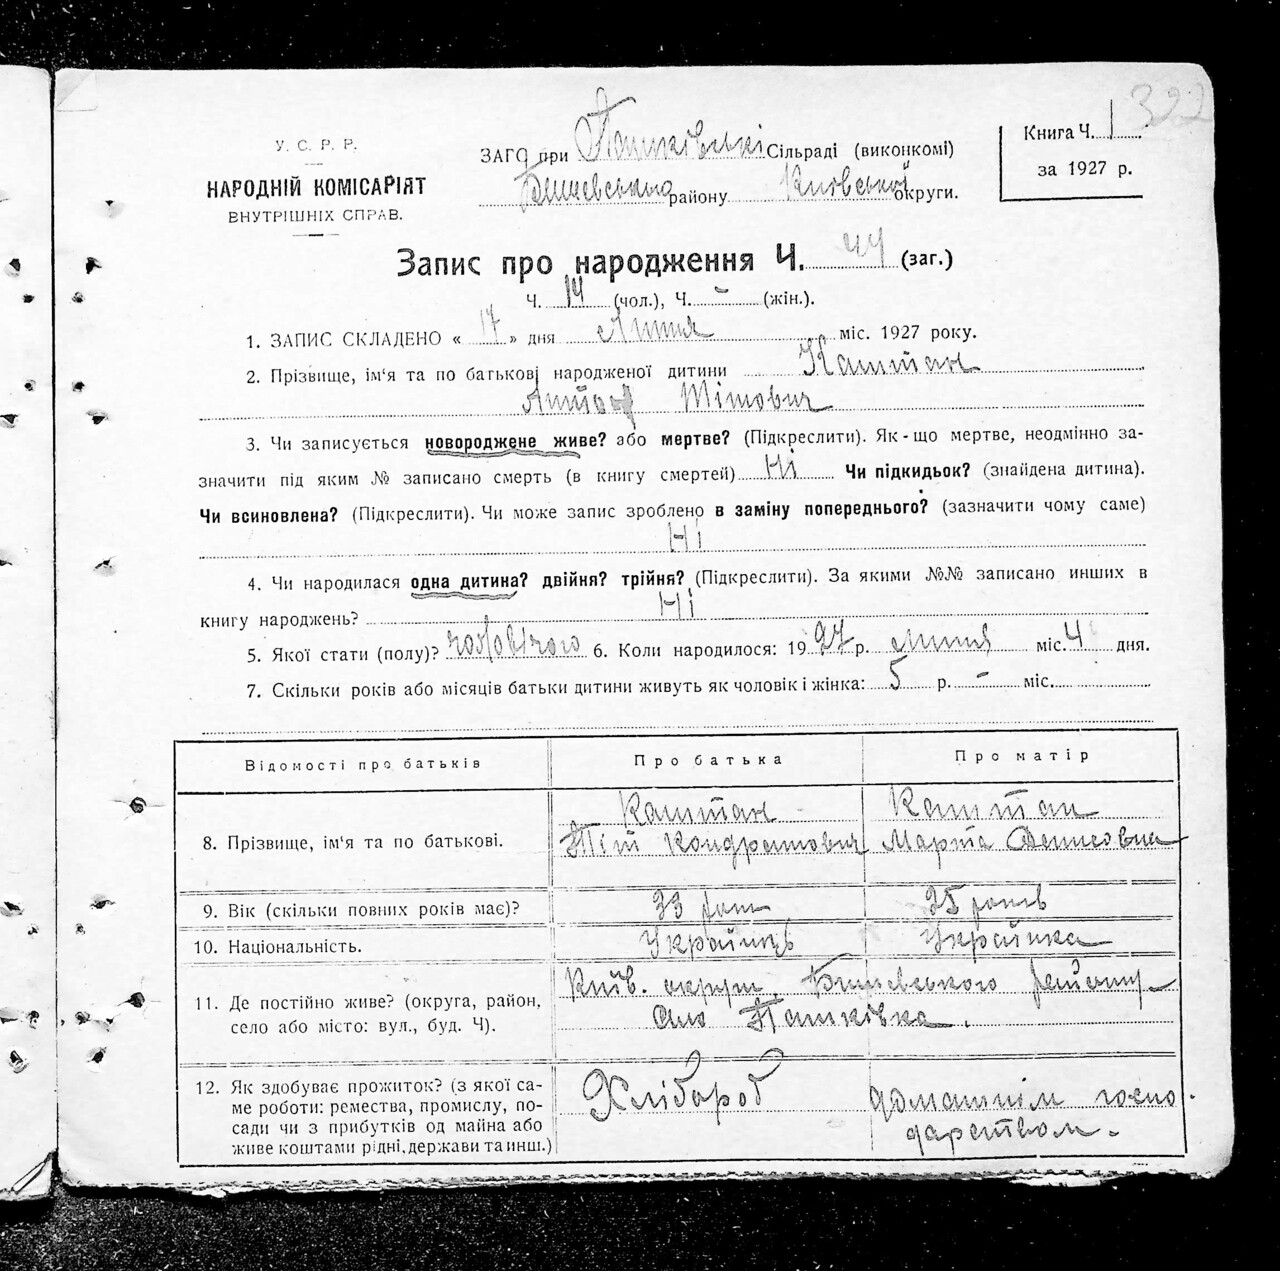 322
У. С. Р. Р.
НАРОДНІЙ КОМІСАРІЯТ
ВНУТРІШНІХ СПРАВ.
ЗАГС при Пашківські Сільраді (виконкомі)
Бишевського району Київської округи.
Книга Ч. 1
за 1927 р.
Запис про народження Ч. 44 (заг.)
Ч. 14 (чол.), Ч. - (жін.).
1. ЗАПИС СКЛАДЕНО « 17 » дня Липня міс. 1927 року.
2. Прізвище, ім'я та по батькові народженої дитини Каштан
Антон Тітович
3. Чи записується новороджене живе? або мертве? (Підкреслити). Як-що мертве, неодмінно за-
значити під яким № записано смерть (в книгу смертей) Ні Чи підкидьок? (знайдена дитина).
Чи всиновлена? (Підкреслити). Чи може запис зроблено в заміну попереднього? (зазначити чому саме)
Ні
4. Чи народилася одна дитина? двійня? трійня? (Підкреслити). За якими №№ записано инших в
книгу народжень? Ні
5. Якої стати (полу)? чоловічого 6. Коли народилося: 1927 р. липня міс. 4 дня.
7. Скільки років або місяців батьки дитини живуть як чоловік і жінка: 5 р. - міс.
Відомості про батьків
Про батька
Про матір
8. Прізвище, ім'я та по батькові.
Каштан
Тіт Кондратович
Каштан
Марта Денисовна
9. Вік (скільки повних років має)?
33 рот
25 років
10. Національність.
Українець
Українка
11. Де постійно живе? (округа, район,
село або місто: вул., буд. Ч).
Київ. округи, Бишевського району
Село Пашківка.
12. Як здобуває прожиток? (з якої са-
ме роботи: ремества, промислу, по-
сади чи з прибутків од майна або
живе коштами рідні, держави та инш.)
Хлібороб
домашнім госпо
дарством.